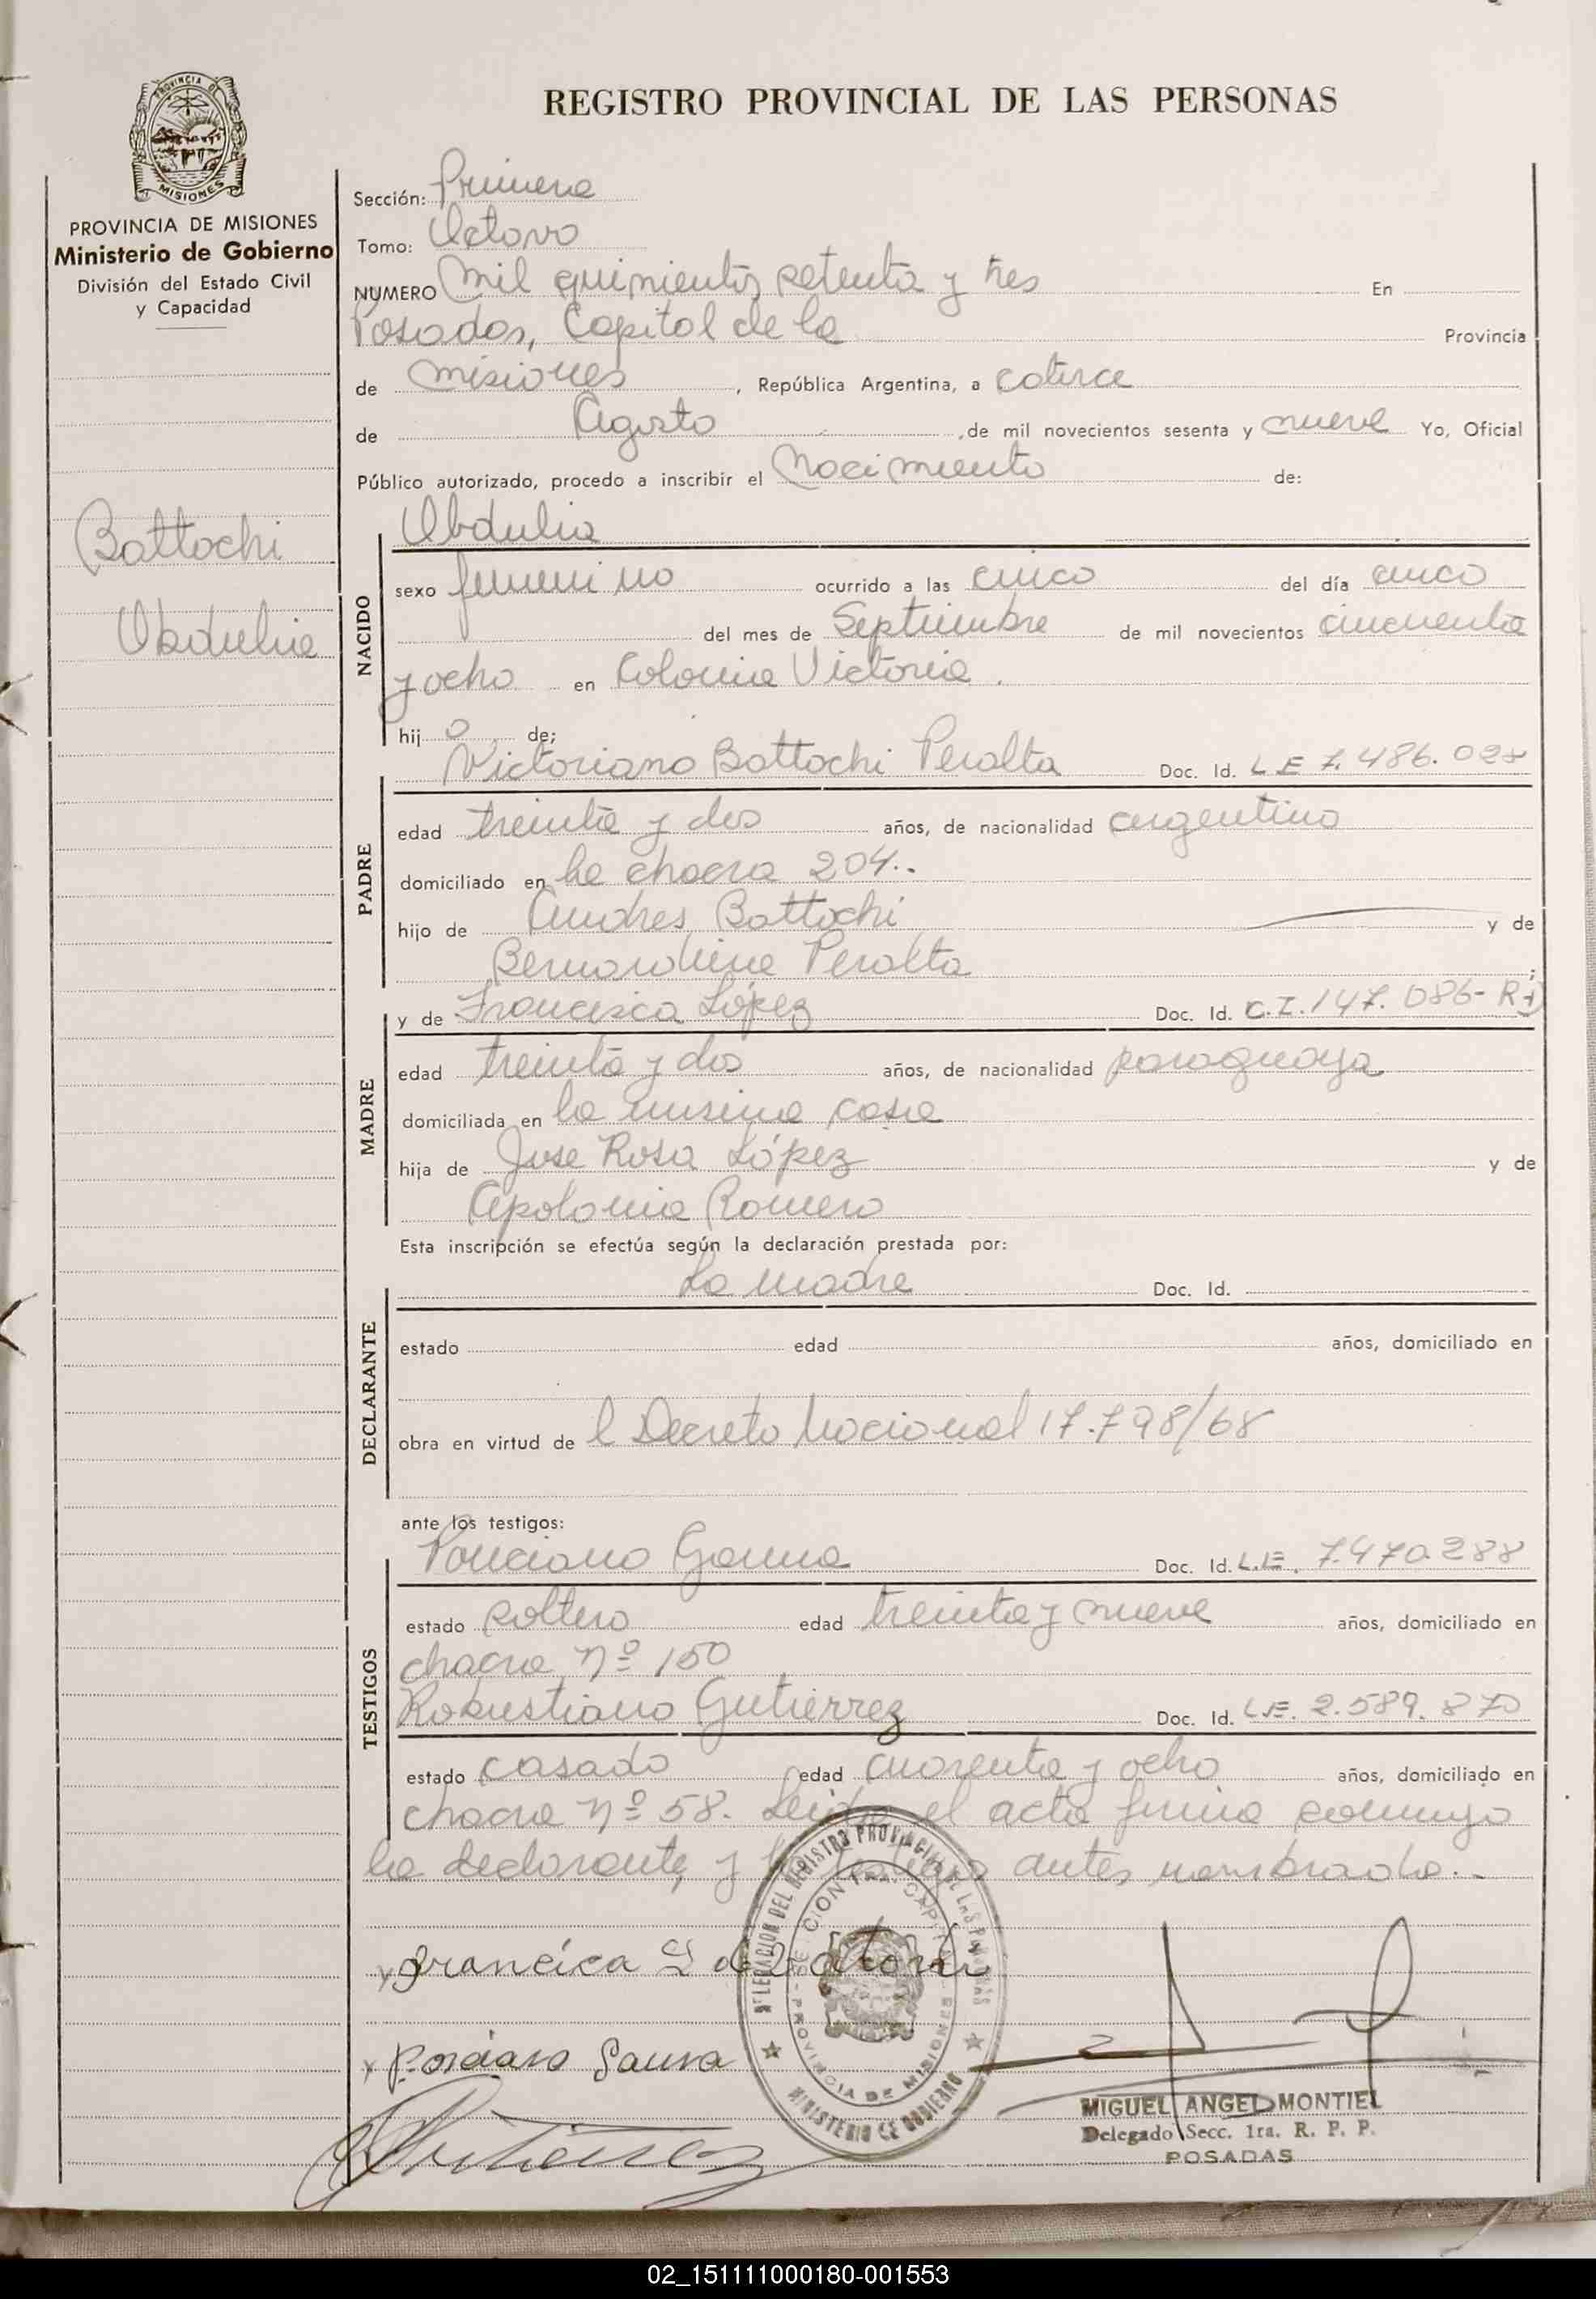 REGISTRO PROVINCIAL DE LAS PERSONAS
PROVINCIA DE
MISIONES
PROVINCIA DE MISIONES
Ministerio de Gobierno
División del Estado Civil
y Capacidad
Battochi
Obdulia
Sección: Primera
Tomo: Octavo
NUMERO Mil quinientos setenta y tres En
Posadas, Capital de la Provincia
de Misiones, República Argentina, a catorce
de Agosto de mil novecientos sesenta y nueve Yo, Oficial
Público autorizado, procedo a inscribir el Nacimiento de:
Obdulia
NACIDO
sexo femenino ocurrido a las cinco del día cinco
del mes de Septiembre de mil novecientos cincuenta
y ocho en Colonia Victoria.
hij a de;
Victoriano Battochi Peralta Doc. Id. L E 7.486.028
PADRE
edad treinta y dos años, de nacionalidad argentino
domiciliado en la chacra 204..
hijo de Andres Battochi y de
Bernardina Peralta ;
y de Francisca López Doc. Id. C.I. 147.086-R1
MADRE
edad treinta y dos años, de nacionalidad paraguaya
domiciliada en la misma casa
hija de Jose Rosa López y de
Apolonia Romero
Esta inscripción se efectúa según la declaración prestada por:
La madre Doc. Id.
DECLARANTE
estado edad años, domiciliado en
obra en virtud de l Decreto Nacional 17.798/68
ante los testigos:
Ponciano Gauna Doc. Id. L.E. 7.470.288
TESTIGOS
estado soltero edad treinta y nueve años, domiciliado en
chacra nº 150
Robustiano Gutierrez Doc. Id. L.E. 2.589.870
estado casado edad cuarenta y ocho años, domiciliado en
chacra nº 58. Leida el acta firma conmigo
la declarante y los testigos antes nombrado..
DELEGACION DEL REGISTRO PROVINCIAL DE LAS PERSONAS
MINISTERIO DE GOBIERNO
SECCION 1ra. CAPITAL
PROVINCIA DE MISIONES
Francica L de Batochi
Ponciano Gauna
Gutierrez
MIGUEL ANGEL MONTIEL
Delegado Secc. 1ra. R. P. P.
POSADAS
02_151111000180-001553